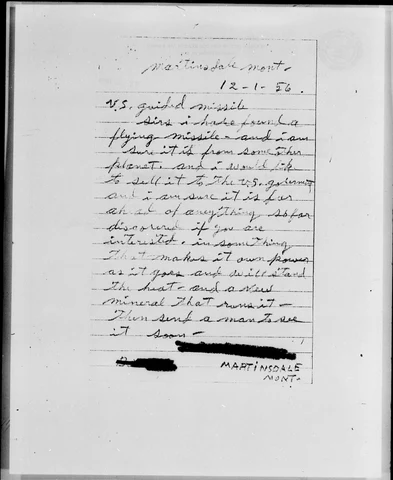 Martinsdale Mont.
12-1-56.
U.S. guided missile
sirs i have found a
flying missile - and i am
sure it is from some other
planet. and i would like
to sell it to the U.S. goverment
and i am sure it is far
ahead of anything so far
discovered if you are
interested. in something
that makes it own power
as it goes and will stand
the heat - and a new
mineral that runs it -
then send a man to see
it soon -
MARTINSDALE
MONT-